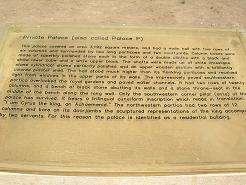 Private Palace (also called Palace P)
This palace covered an area 3,192 square meters, and had a main hall with five rows of
six columns and surrounded by long porticoes and two courtyards. Column bases were
made of specially polished stone each in the form of a double plinth with a black and
white lower cube and a white upper block. The shafts were made up of white limestone
while cylindrical drums perfectly polished and an upper wooden section with a brilliantly
colored plaster coat. The hall stood much higher than its flanking porticoes and received
light from windows in the upper parts of its walls. The impressively paved southeastern
portico overlooked the royal gardens and paved water channels. It had two rows of twenty
columns, and a bench of black stone abutting its walls and a stone throne-seat in the
middle of the bench along the wall. Only the southwestern corner pillar (anta) of the
palace has survived. It bears a trilingual cuneiform inscription which reads in translation:
"I am Cyrus the king, an Achaemenid." The northwestern portico had two rows of 12
columns and bore on its doorjambs the sculptured representations of the king accompanied
by two servants. For this reason the palace is identified as a residential building.